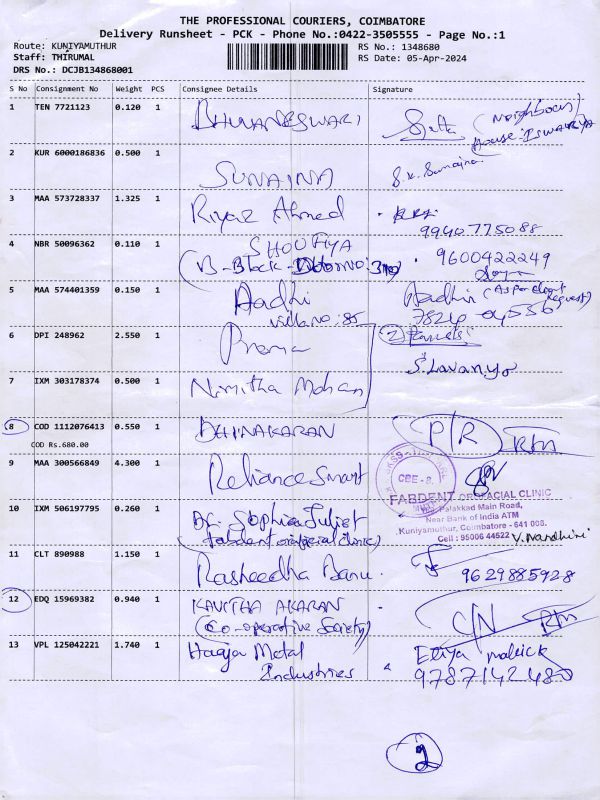 THE PROFESSIONAL COURIERS, COIMBATORE
Delivery Runsheet - PCK - Phone No.:0422-3505555 - Page No.:1
Route: KUNIYAMUTHUR
Staff: THIRUMAL
DRS No.: DCJB134868001
RS No.: 1348680
RS Date: 05-Apr-2024
S No Consignment No Weight PCS Consignee Details Signature
1 TEN 7721123 0.120 1 BHUVANESWARI (Neighbour)
House: ISWARYA
2 KUR 6000186836 0.500 1 SUNAINA S.K. Sunaina
3 MAA 573728337 1.325 1 Riyaz Ahmed 9940775088
4 NBR 50096362 0.110 1 SHOUFIYA
(B-Block-Doorno: 9600422249
5 MAA 574401359 0.150 1 Aadhi Aadhi (As per client request)
villa no: 85
6 DPI 248962 2.550 1 Prema (2) Parcels
7 IXM 303178374 0.500 1 Nimitha Mohan S. Lavanya
8 COD 1112076413 0.550 1 DHINAKARAN P/R Rtn
COD Rs.680.00
9 MAA 300566849 4.300 1 Reliance Smart
CBE - 8.
FABDENT OROFACIAL CLINIC
Palakkad Main Road,
Near Bank of India ATM
Kuniyamuthur, Coimbatore - 641 008.
Cell : 95006 44522 V. Nandhini
10 IXM 506197795 0.260 1 Dr. Sophia Juliet
(fabdent orofacial clinic)
11 CLT 890988 1.150 1 Rasheedha Banu. 9629885928
12 EDQ 15969382 0.940 1 KAVITHA AKARAN C/N Rtn
(Co-operative Society)
13 VPL 125042221 1.740 1 Haaja Metal
Industries 9787142480
2